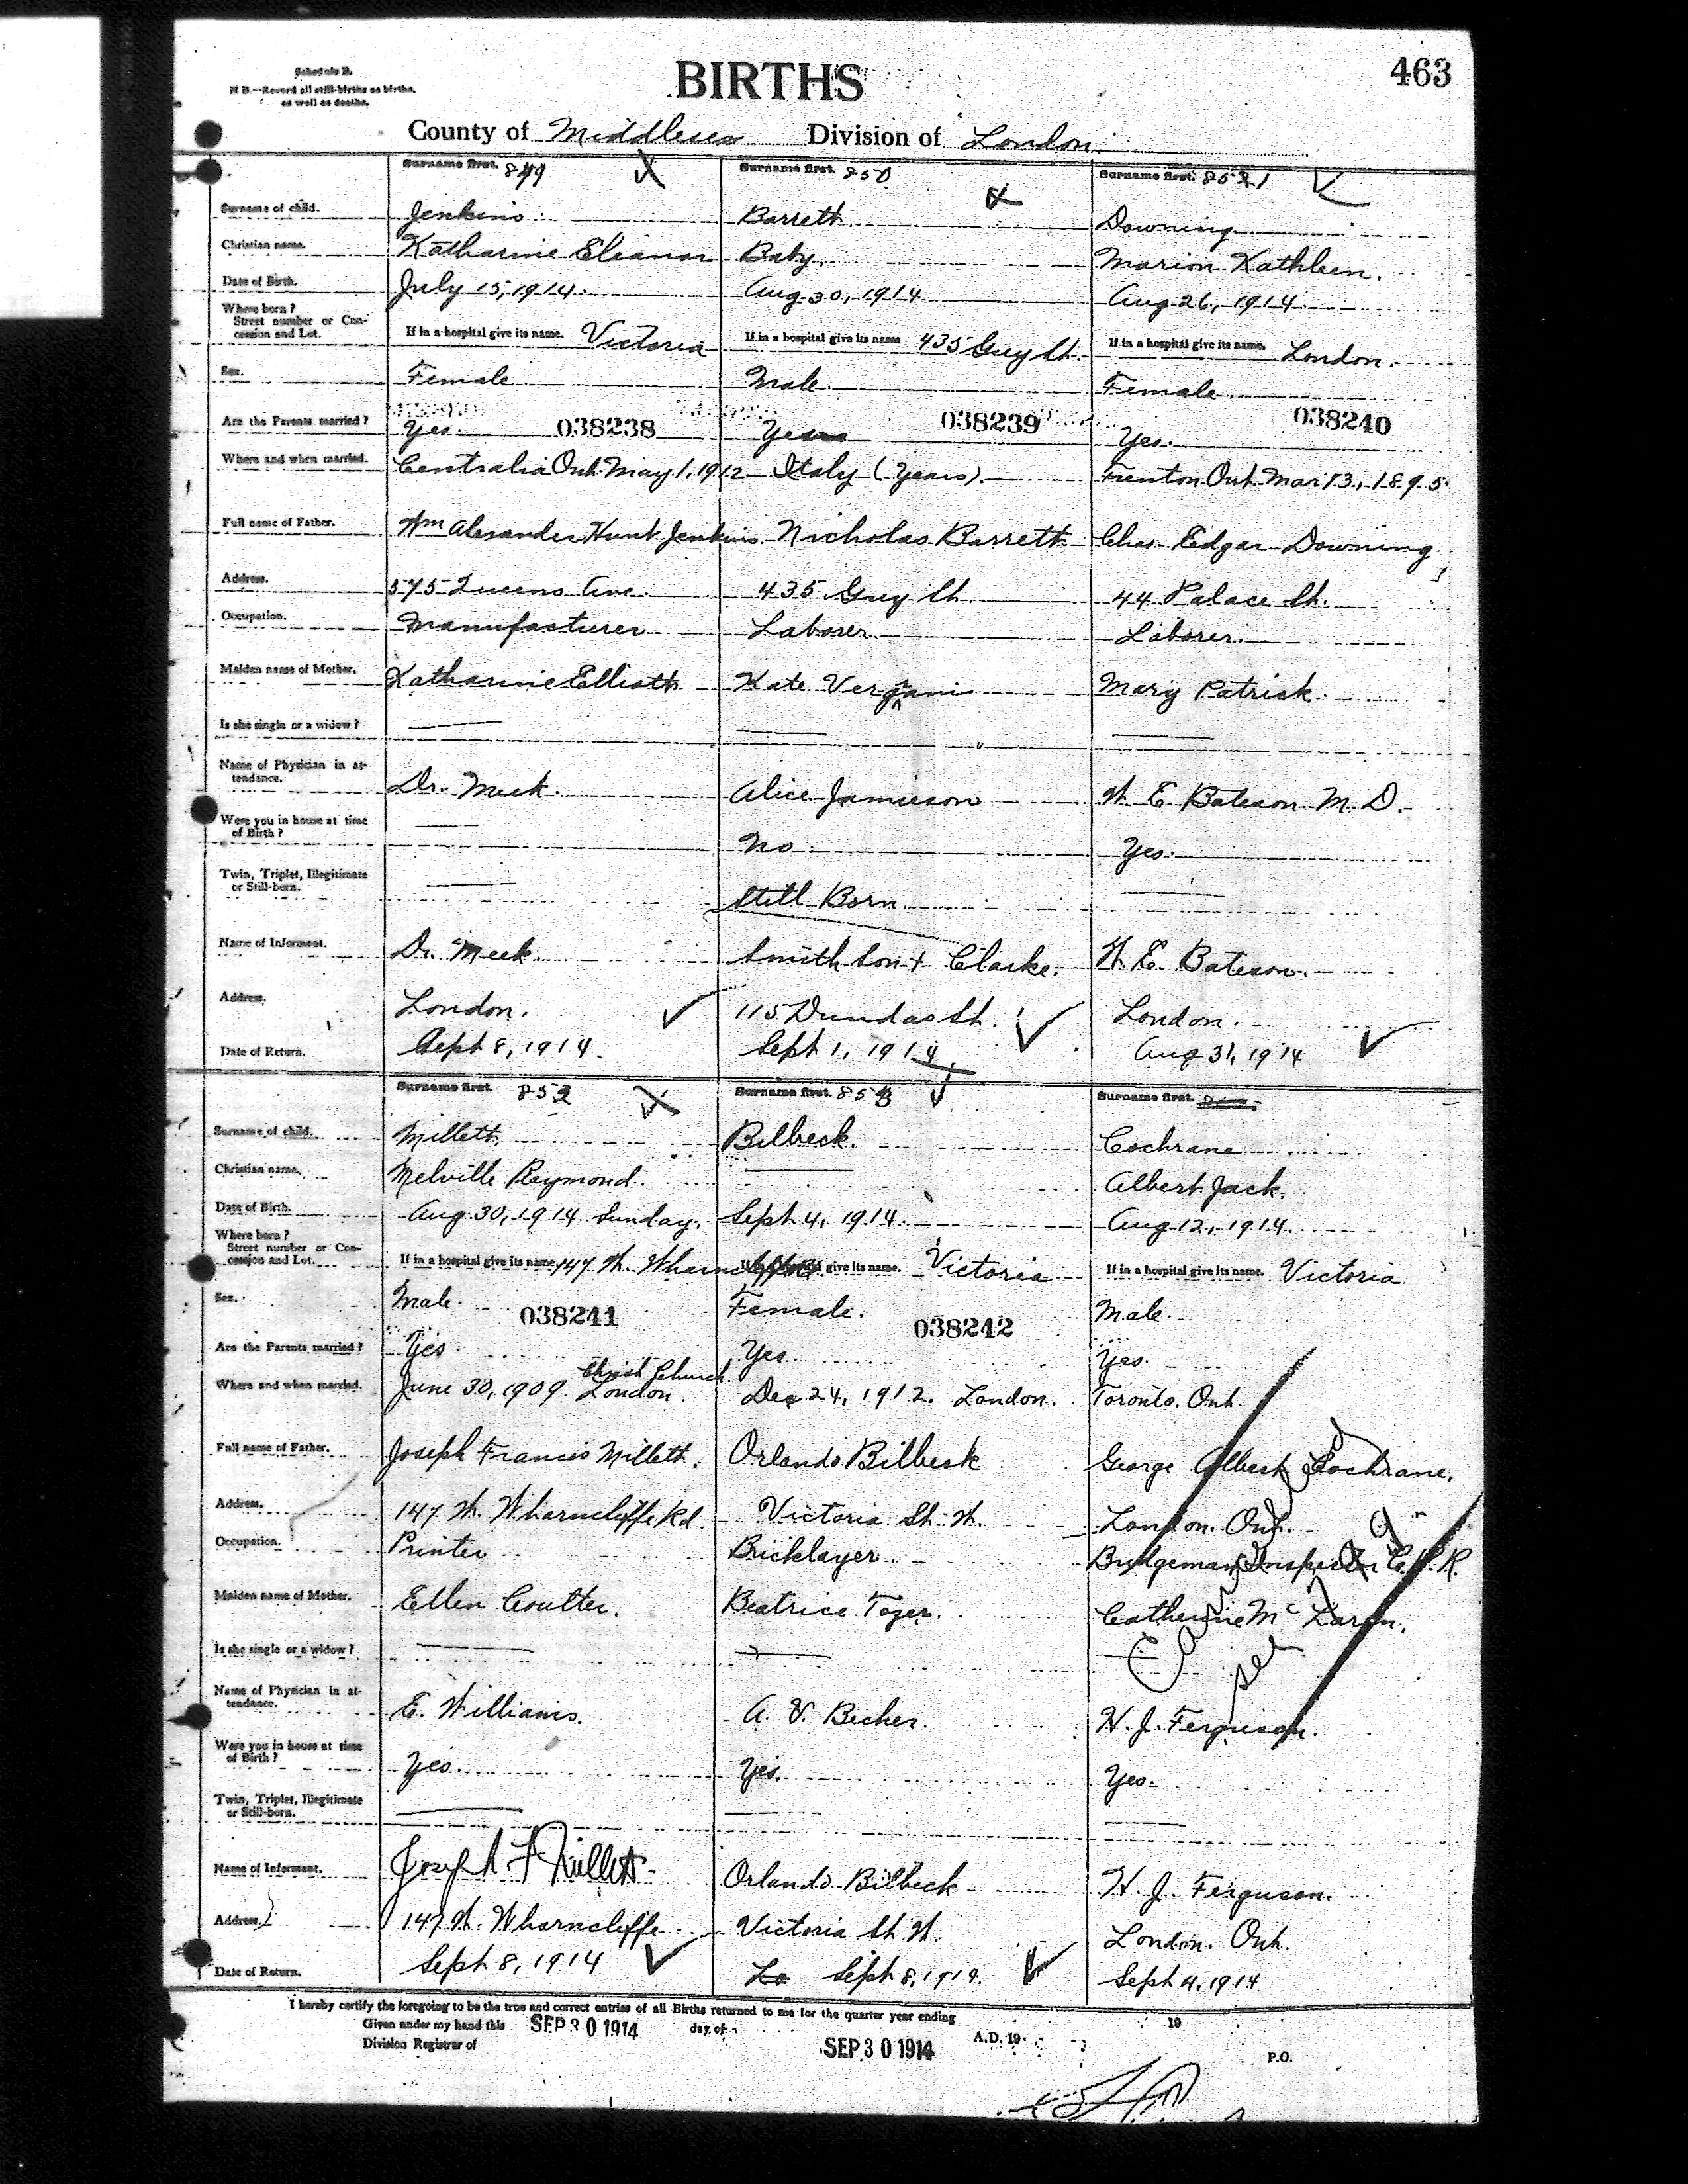 Schedule B.
N B.—Record all still-births as births,
as well as deaths.
BIRTHS
463
County of Middlesex Division of London
Surname first. 849
Surname first. 850
Surname first. 851
Surname of child. Jenkins Barrett Downing
Christian name. Katharine Eleanor Baby. Marion Kathleen.
Date of Birth. July 15, 1914. Aug 30, 1914 Aug 26, 1914
Where born?
Street number or Con-
cession and Lot. If in a hospital give its name. Victoria If in a hospital give its name 435 Grey St. If in a hospital give its name. London.
Sex. Female Male. Female
038238 038239 038240
Are the Parents married? Yes. Yes Yes.
Where and when married. Centralia Ont. May 1, 1912 Italy (Years) Trenton Ont. Mar 13, 1895
Full name of Father. Wm Alexander Hunt Jenkins Nicholas Barrett Chas Edgar Downing
Address. 575 Queens Ave. 435 Grey St. 44 Palace St.
Occupation. Manufacturer Laborer Laborer.
Maiden name of Mother. Katharine Elliott Kate Mary Patrick
Is she single or a widow?
Name of Physician in at-
tendance. Dr. Meek. Alice Jamieson W. E. Bateson M. D.
Were you in house at time
of Birth? No Yes.
Twin, Triplet, Illegitimate
or Still-born. Still Born
Name of Informent. Dr. Meek. Smith Son + Clarke. W. E. Bateson.
Address. London. 115 Dundas St. London.
Date of Return. Sept 8, 1914. Sept 1, 1914 Aug 31, 1914
Surname first. 852
Surname first. 853
Surname first.
Surname of child. Millett Bilbeck. Cochrane
Christian name. Melville Raymond. Albert Jack.
Date of Birth. Aug 30, 1914 Sunday. Sept 4, 1914. Aug 12, 1914.
Where born?
Street number or Con-
cession and Lot. If in a hospital give its name. 147 W. Wharncliffe Rd. give its name. Victoria If in a hospital give its name. Victoria
Sex. Male. Female. Male
038241 038242
Are the Parents married? Yes Yes. Yes.
Christ Church
Where and when married. June 30, 1909 London. Dec 24, 1912. London. Toronto. Ont.
Full name of Father. Joseph Francis Millett. Orlando Bilbeck George Albert Cochrane.
Address. 147 W. Wharncliffe Rd. Victoria St. W. London. Ont.
Occupation. Printer Bricklayer. Bridgeman Inspector C.P.R.
Maiden name of Mother. Ellen Coulter. Beatrice Tozer. Catherine McLaren.
Cancelled
see
Is she single or a widow?
Name of Physician in at-
tendance. E. Williams. A. V. Becher. H. J. Ferguson.
Were you in house at time
of Birth? Yes. Yes. Yes.
Twin, Triplet, Illegitimate
or Still-born.
Name of Informent. Joseph F Millett Orlando Bilbeck H. J. Ferguson.
Address. 147 W. Wharncliffe Victoria St. W. London. Ont.
Date of Return. Sept 8, 1914 Lo Sept 8, 1914. Sept 4, 1914
I hereby certify the foregoing to be the true and correct entries of all Births returned to me for the quarter year ending 19
Given under my hand this SEP 30 1914 day of SEP 30 1914 A.D. 19
Division Registrar of P.O.